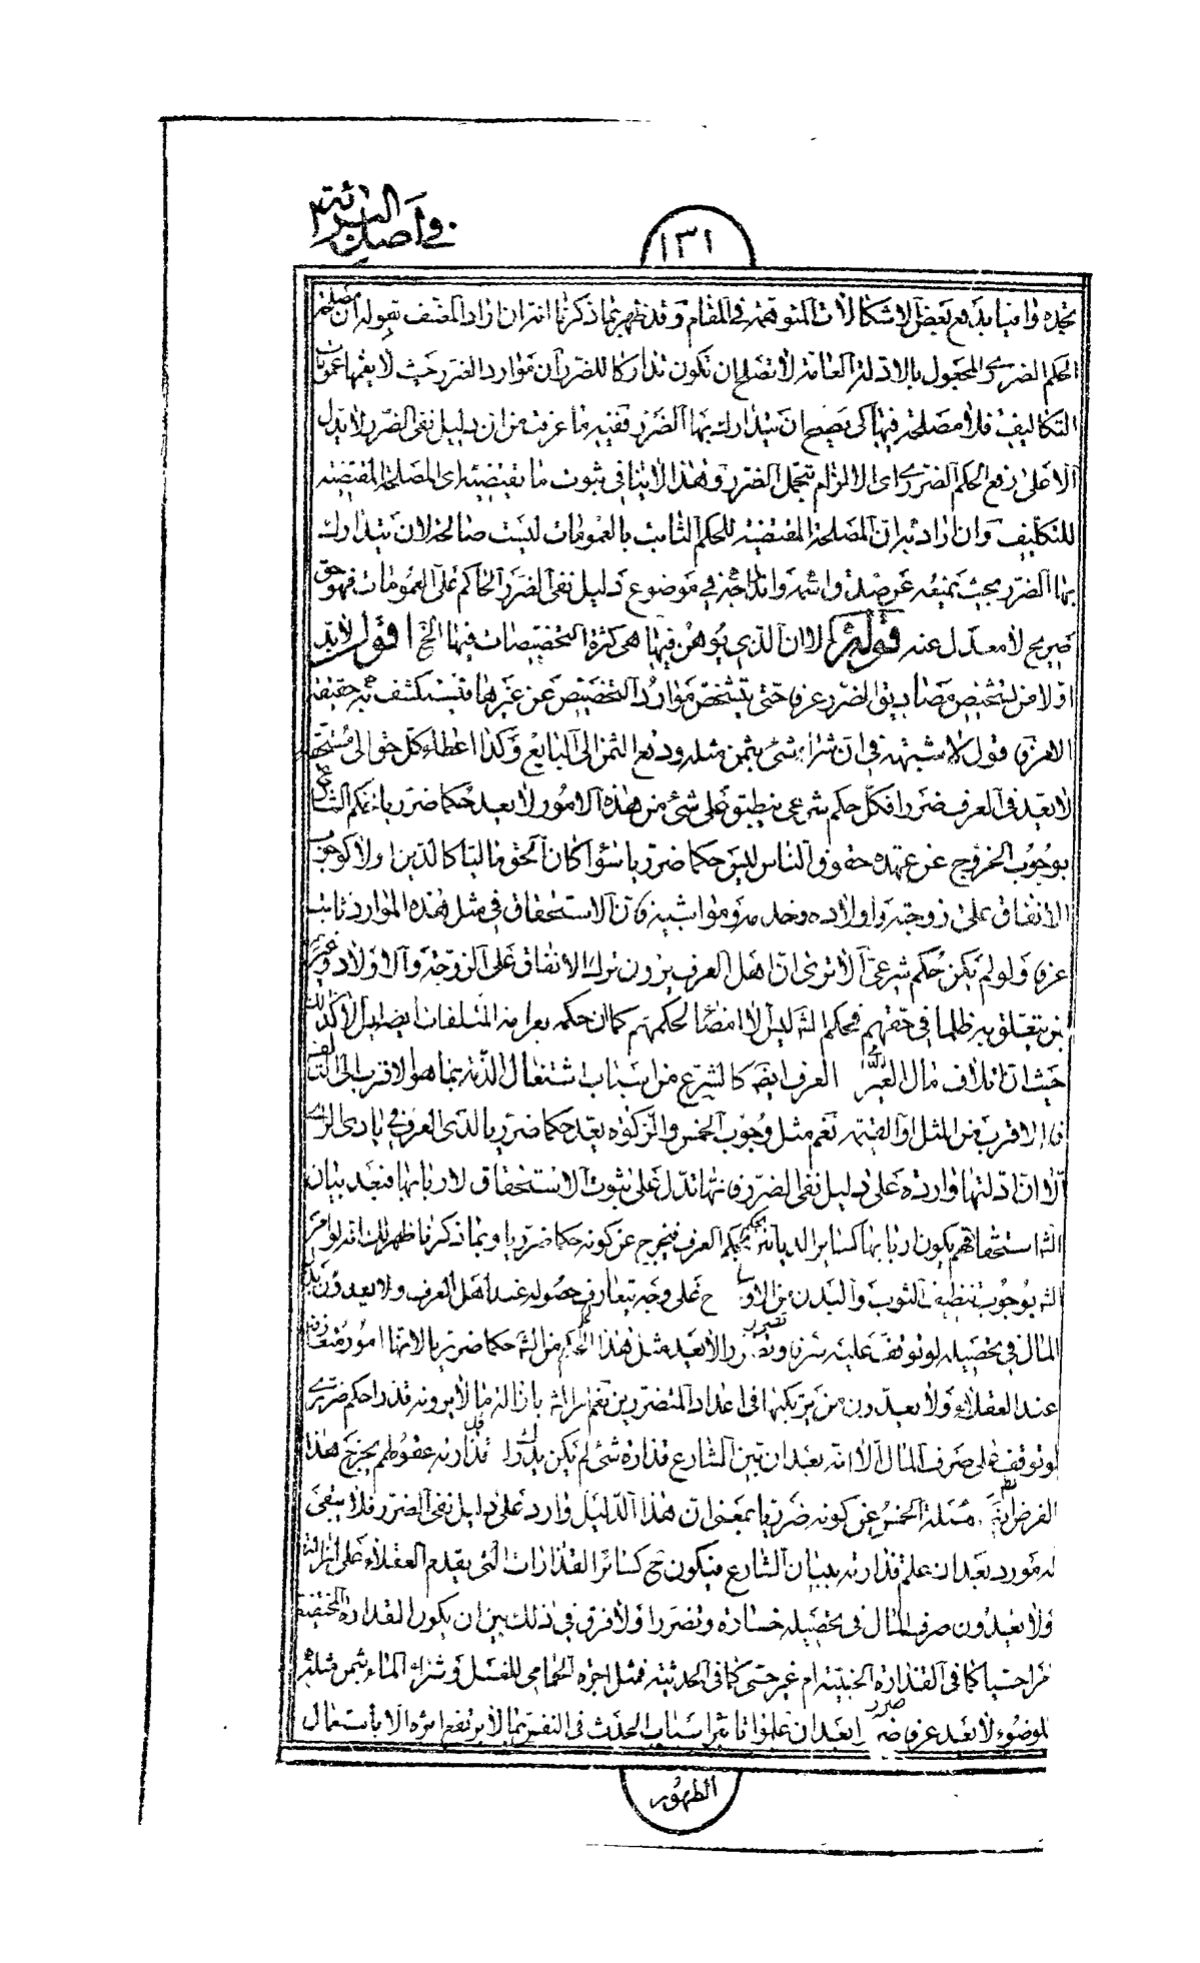 في أصل البرائة
١٣١
تجده وافيا بدفع بعض الاشكالات المتوهمة في المقام وقد ظهر بما ذكرنا انه ان اراد المصنف بقوله ان مصلحة
الحكم الضرري المجعول بالادلة العامة لا تصلح ان تكون تداركا للضرر ان موارد الضرر حيث لا يعمها عمومات
التكاليف فلا مصلحة فيها كى يصح ان يتدارك بها الضرر ففيه ما عرفت من ان دليل نفى الضرر لا يدل
الا على رفع الحكم الضررى اى الالزام بتحمل الضرر وهذا لا ينافى ثبوت ما يقتضيه اى المصلحة المقتضية
للتكليف وان اراد به ان المصلحة المقتضية للحكم الثابت بالعمومات ليست صالحة لان يتدارك
بها الضرر بحيث يمنعه عن صدق واندراجه في موضوع دليل نفى الضرر الحاكم على العمومات فهو حق
صريح لا معدل عنه قوله لا ان الذى يوهن فيها هى كثرة التخصيصات فيها الخ اقول لابد
اولا من تشخيص مصاديق الضرر عرفا حتى يتشخص موارد التخصيص عن غيرها فيستكشف به حقيقة
الامر فنقول لا شبهة في ان شراء شئ بثمن مثله ودفع الثمن الى البايع وكذا اعطاء كل حق الى مستحقه
لا يعد في العرف ضررا فكل حكم شرعى ينطبق على شئ من هذه الامور لا يعد حكما ضرريا فحكم الشارع
بوجوب الخروج عن عهدة حقوق الناس ليس حكما ضرريا سواء كان الحق ماليا كالدين اولا كوجوب
الانفاق على زوجته واولاده وخدمه ومواشيه فان الاستحقاق في مثل هذه الموارد ثابت
عرفا ولو لم يكن حكم شرعى الا ترى ان اهل العرف يرون ترك الانفاق على الزوجة والاولاد وغيره
بمن يتعلق به ظلما في حقهم فحكم الشه ليس الا امضاء لحكمهم كما ان حكمه بغرامة المتلفات ايضا ليس الا كذلك
حيث ان اتلاف مال الغير العرف ايضه كالشرع من اسباب اشتغال الذمة بما هو الاقرب الى التالف
فالاقرب من المثل او القيمة نعم مثل وجوب الخمس والزكوة يعد حكما ضرريا لدى العرف في بادى الراى
الا ان ادلتها واردة على دليل نفى الضرر فانها تدل على ثبوت الاستحقاق لاربابها فبعد بيان
الشه استحقاقهم يكون اربابها كسائر الديان بحكم العرف فيخرج عن كونه حكما ضرريا ومما ذكرنا ظهر لك انه لو امر
الشه بوجوب تنظيف الثوب والبدن من الاوساخ على وجه يتعارف حصوله عند اهل العرف ولا يعدون بذل
المال في تحصيله لو توقف عليه شرفا وتضررا لا يعد مثل هذا الحكم من الشه حكما ضرريا لانها امور متعارفة
عند العقلاء ولا يعدون من يرتكبها في اعداد المتضررين نعم الزامه بازالة ما لا يرونه قذرا حكم ضررى
لو توقف على صرف المال الا انه بعد ان تبين الشارع قذارة شئ لم يكن يدرك قذارته عقولهم يخرج هذا
الفرض نظير مسئلة الخمس عن كونه ضرريا بمعنى ان هذا الدليل وارد على دليل نفى الضرر فلا يبقى
له مورد بعد ان علم قذارته ببيان الشارع فيكون ح كسائر القذارات التى يقدم العقلاء على ازالتها
ولا يعدون صرف المال في تحصيله خسارة وتضررا ولا فرق في ذلك بين ان يكون القذارة المختفية
امرا حسيا كما في القذارة الخبيثة ام غير حسى كما في الحدثية فمثل اجرة الحمامى للغسل وشراء الماء بثمن مثله
للوضوء لا يعد عرفا ضررا بعد ان علموا تاثير اسباب الحدث في النفس بما لا يرتفع اثره الا باستعمال
الطهور